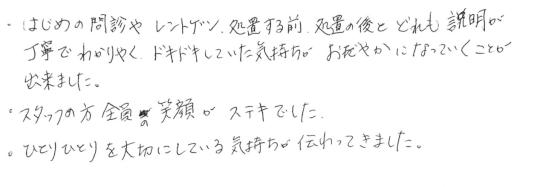 ・はじめの問診や レントゲン、処置する前、処置の後と どれも 説明が
丁寧でわかりやく、ドキドキしていた気持ちが おだやかになっていくことが
出来ました。
・スタッフの方 全員の笑顔が ステキでした。
。ひとりひとりを大切にしている気持ちが伝わってきました。